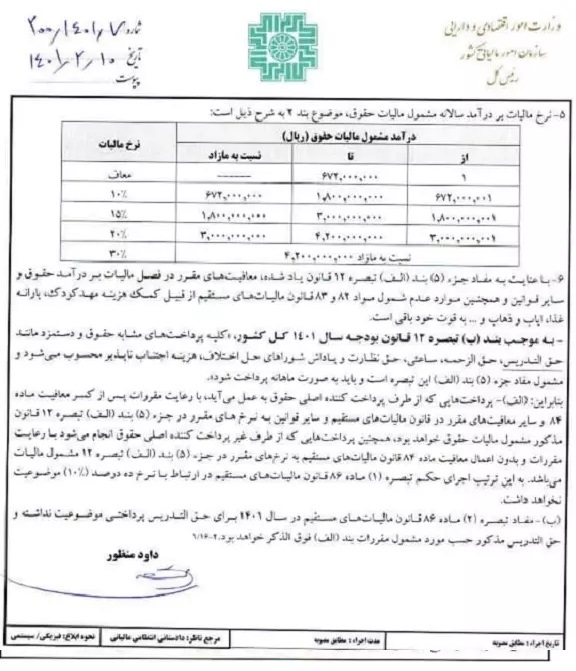 وزارت امور اقتصادی و دارایی
سازمان امور مالیاتی کشور
رئیس کل
شماره ۲۰۰/۱۴۰۱/۷
تاریخ ۱۴۰۱/۲/۱۰
پیوست
۵- نرخ مالیات بر درآمد سالانه مشمول مالیات حقوق، موضوع بند ۲ به شرح ذیل است:
درآمد مشمول مالیات حقوق (ریال) نرخ مالیات
از تا نسبت به مازاد
۱ ۶۷۲,۰۰۰,۰۰۰ ------ معاف
۶۷۲,۰۰۰,۰۰۱ ۱,۸۰۰,۰۰۰,۰۰۰ ۶۷۲,۰۰۰,۰۰۰ ۱۰٪
۱,۸۰۰,۰۰۰,۰۰۱ ۳,۰۰۰,۰۰۰,۰۰۰ ۱,۸۰۰,۰۰۰,۰۰۰ ۱۵٪
۳,۰۰۰,۰۰۰,۰۰۱ ۴,۲۰۰,۰۰۰,۰۰۰ ۳,۰۰۰,۰۰۰,۰۰۰ ۲۰٪
نسبت به مازاد ۴,۲۰۰,۰۰۰,۰۰۰ ۳۰٪
۶- با عنایت به مفاد جزء (۵) بند (الف) تبصره ۱۲ قانون یاد شده، معافیت‌های مقرر در فصل مالیات بر درآمد حقوق و
سایر قوانین و همچنین موارد عدم شمول مواد ۸۲ و ۸۳ قانون مالیات‌های مستقیم از قبیل کمک هزینه مهد کودک، یارانه
غذا، ایاب و ذهاب و ... به قوت خود باقی است.
- به موجب بند (ب) تبصره ۱۲ قانون بودجه سال ۱۴۰۱ کل کشور، «کلیه پرداخت‌های مشابه حقوق و دستمزد مانند
حق التدریس، حق الزحمه، ساعتی، حق نظارت و پاداش شوراهای حل اختلاف، هزینه اجتناب ناپذیر محسوب می‌شود و
مشمول مفاد جزء (۵) بند (الف) این تبصره است و باید به صورت ماهانه پرداخت شود».
بنابراین: (الف)- پرداخت‌هایی که از طرف پرداخت کننده اصلی حقوق به عمل می‌آید، با رعایت مقررات پس از کسر معافیت ماده
۸۴ و سایر معافیت‌های مقرر در قانون مالیات‌های مستقیم و سایر قوانین به نرخ های مقرر در جزء (۵) بند (الف) تبصره ۱۲ قانون
مذکور مشمول مالیات حقوق خواهد بود، همچنین پرداخت‌هایی که از طرف غیر پرداخت کننده اصلی حقوق انجام می‌شود با رعایت
مقررات و بدون اعمال معافیت ماده ۸۴ قانون مالیات‌های مستقیم به نرخ‌های مقرر در جزء (۵) بند (الف) تبصره ۱۲ مشمول مالیات
می‌باشد. به این ترتیب اجرای حکم تبصره (۱) ماده ۸۶ قانون مالیات‌های مستقیم در ارتباط با نرخ ده درصد (۱۰٪) موضوعیت
نخواهد داشت.
(ب)- مفاد تبصره (۲) ماده ۸۶ قانون مالیات‌های مستقیم در سال ۱۴۰۱ برای حق التدریس پرداختی موضوعیت نداشته و
حق التدریس مذکور حسب مورد مشمول مقررات بند (الف) فوق الذکر خواهد بود. ۶/۱۶-۲
داود منظور
تاریخ اجراء: مطابق مصوبه مدت اجراء: مطابق مصوبه مرجع ناظر: دادستانی انتظامی مالیاتی نحوه ابلاغ: فیزیکی/ سیستمی